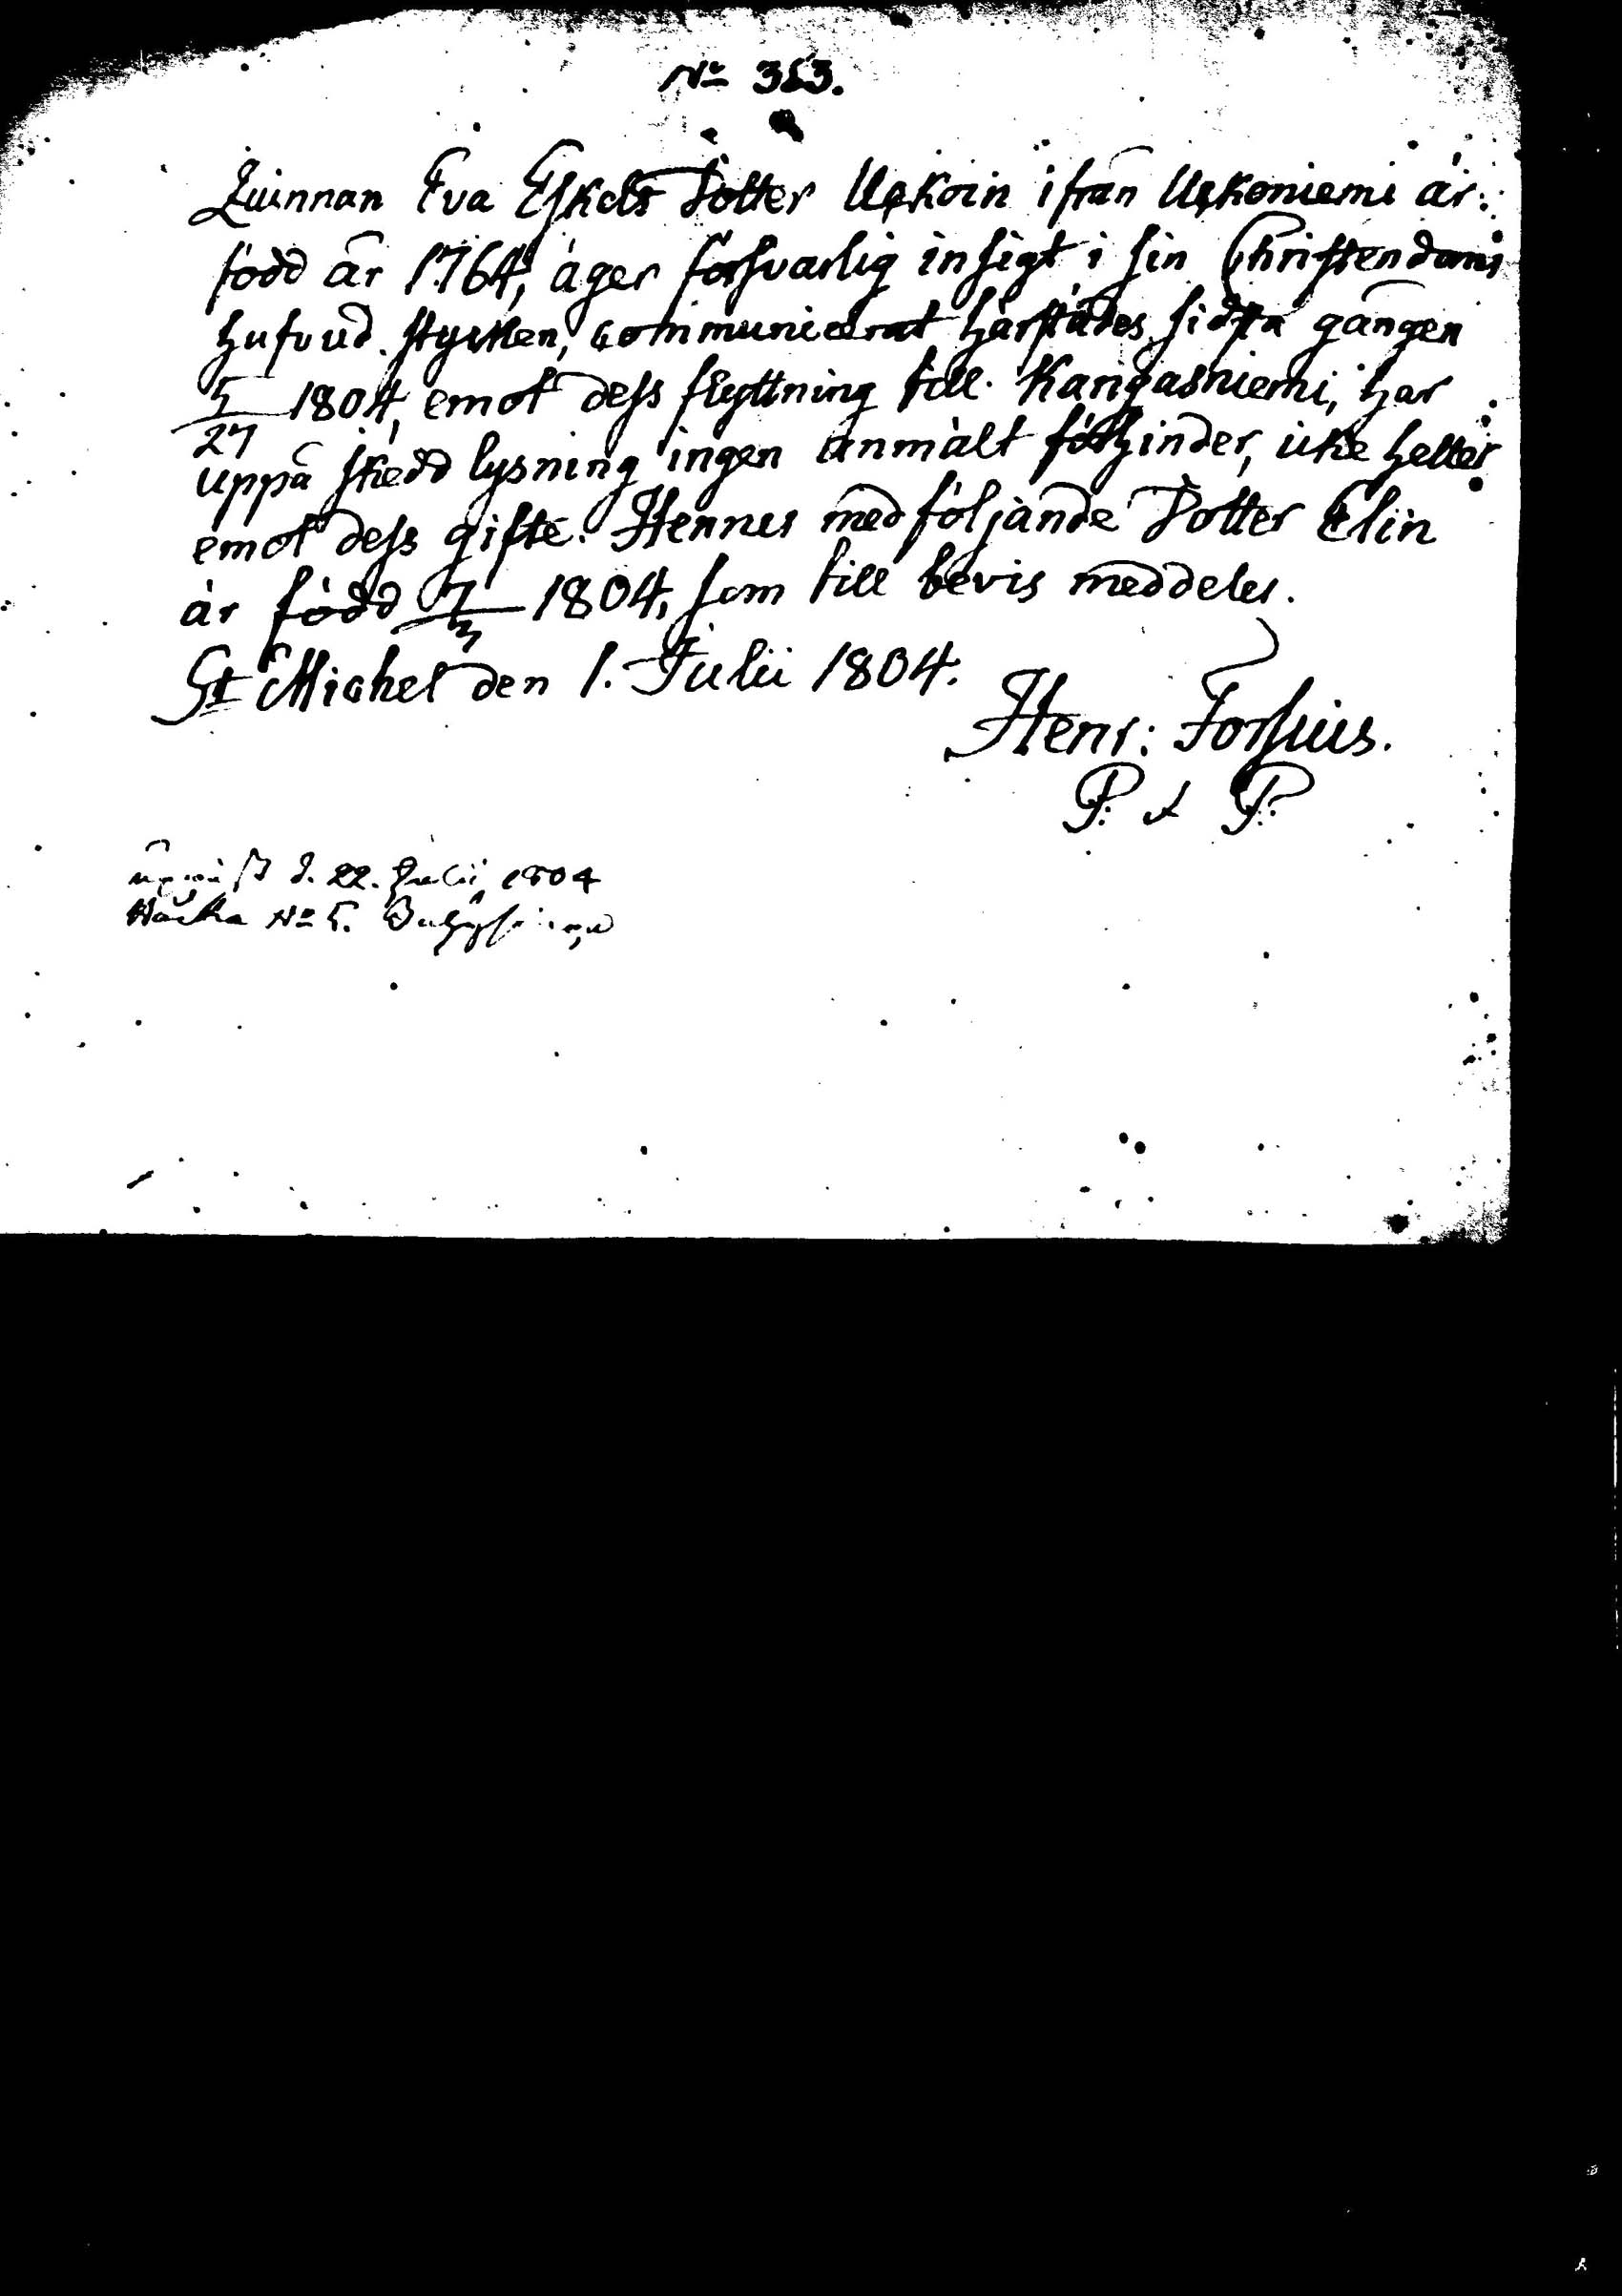 No 353.
Quinnan Eva Eskels Dotter Uskoin ifrån Uskoniemi är
född år 1764, äger försvarlig insigt i sin Christendoms
hufvud stycken, communicerat härstädes sidsta gången
5/27 1804, emot dess flyttning till Kangasniemi, har
uppå skedd lysning ingen anmält förhinder, icke heller
emot dess gifte. Hennes medföljande Dotter Elin
är född 7/3 1804, som till bevis meddeles.
St Michel den 1. Julii 1804.
Henr: Forsius.
P. & P.
d. 22. Julii 1804
No 5.